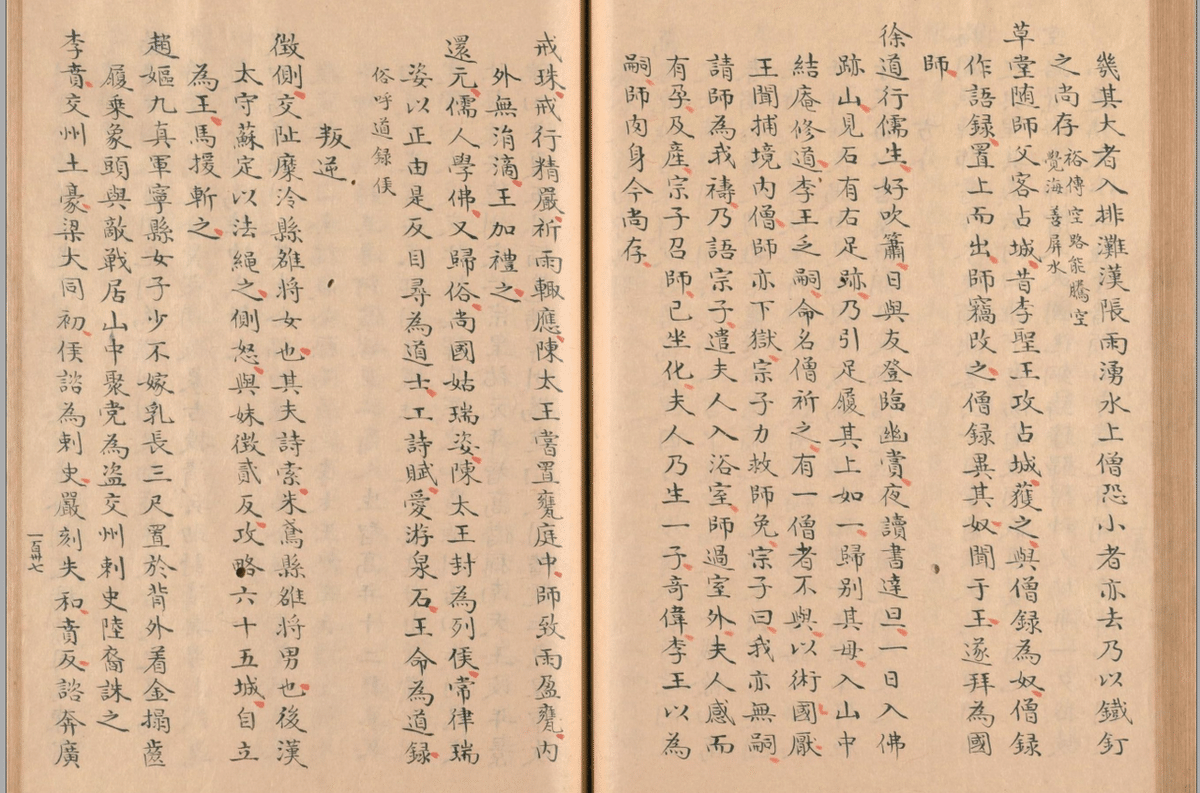 幾其大者入排灘漢張雨湧水上僧恐小者亦去乃以鐵釘
之尚存裕傳空路能騰空
覺海善屏水
草堂随師父客占城昔李聖王攻占城獲之與僧録為奴僧録
作語録置上而出師竊改之僧録異其奴聞于王遂拜為國
師
徐道行儒生好吹簫日與友登臨幽賞夜讀書達旦一日入佛
跡山見石有右足跡乃引足履其上如一歸别其母入山中
結庵修道李王乏嗣命名僧祈之有一僧者不與以術國厭
王聞捕境内僧師亦下獄宗子力救師免宗子曰我亦無嗣
請師為我禱乃語宗子遣夫人入浴室師過室外夫人感而
有孕及産宗子召師已坐化夫人乃生一子奇偉李王以為
嗣師肉身今尚存
戒珠戒行精嚴祈雨輙應陳太王嘗置甕庭中師致雨盈甕内
外無涓滴王加禮之
還元儒人學佛又歸俗尚國姑瑞姿陳太王封為列侯常律瑞
姿以正由是反目尋為道士工詩賦愛游泉石王命為道録
俗呼道録侯
叛逆
徵側交阯麋泠縣雒將女也其夫詩索朱鳶縣雒將男也後漢
太守蘇定以法繩之側怒與妹徵貳反攻略六十五城自立
為王馬援斬之
趙嫗九真軍寧縣女子少不嫁乳長三尺置於背外着金搨齒
履乗象頭與敵戦居山中聚党為盗交州刺史陸裔誅之
李賁交州土豪梁大同初侯諮為刺史嚴刻失和賁反諮奔廣
一百卅七